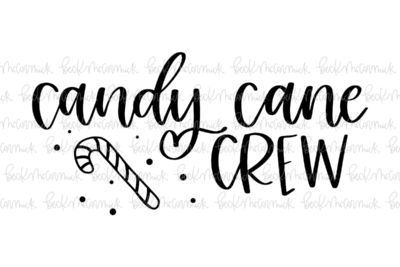 candy cane
CREW